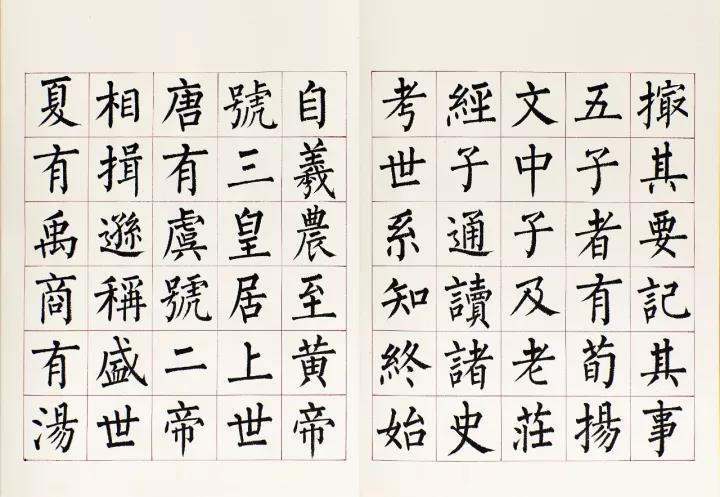 撮其要記其事
五子者有荀揚
文中子及老莊
經子通讀諸史
考世系知終始
自羲農至黄帝
號三皇居上世
唐有虞號二帝
相揖遜稱盛世
夏有禹商有湯